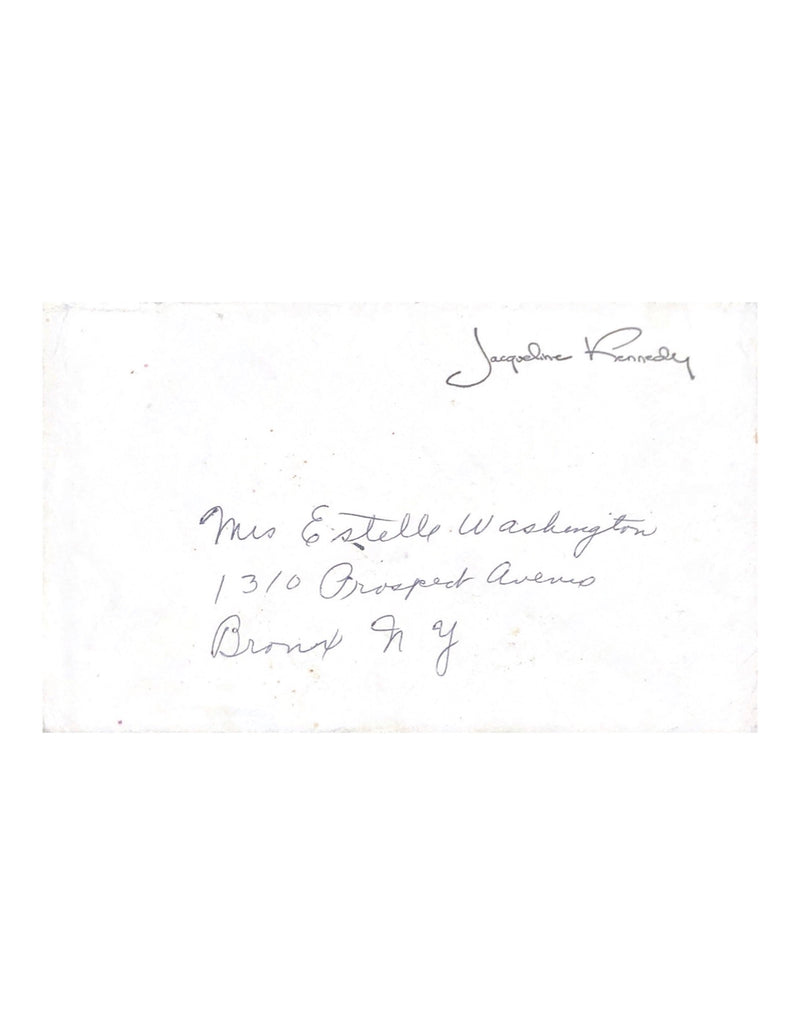 Jacqueline Kennedy
Mrs Estelle Washington
1310 Prospect Avenue
Bronx N Y